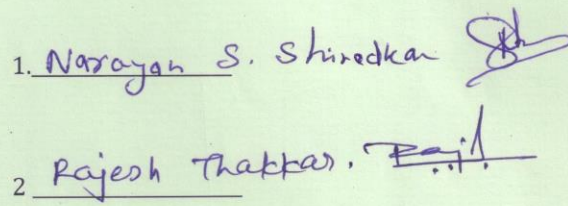 1. Narayan S. Shiradkar
2 Rajesh Thakkar.